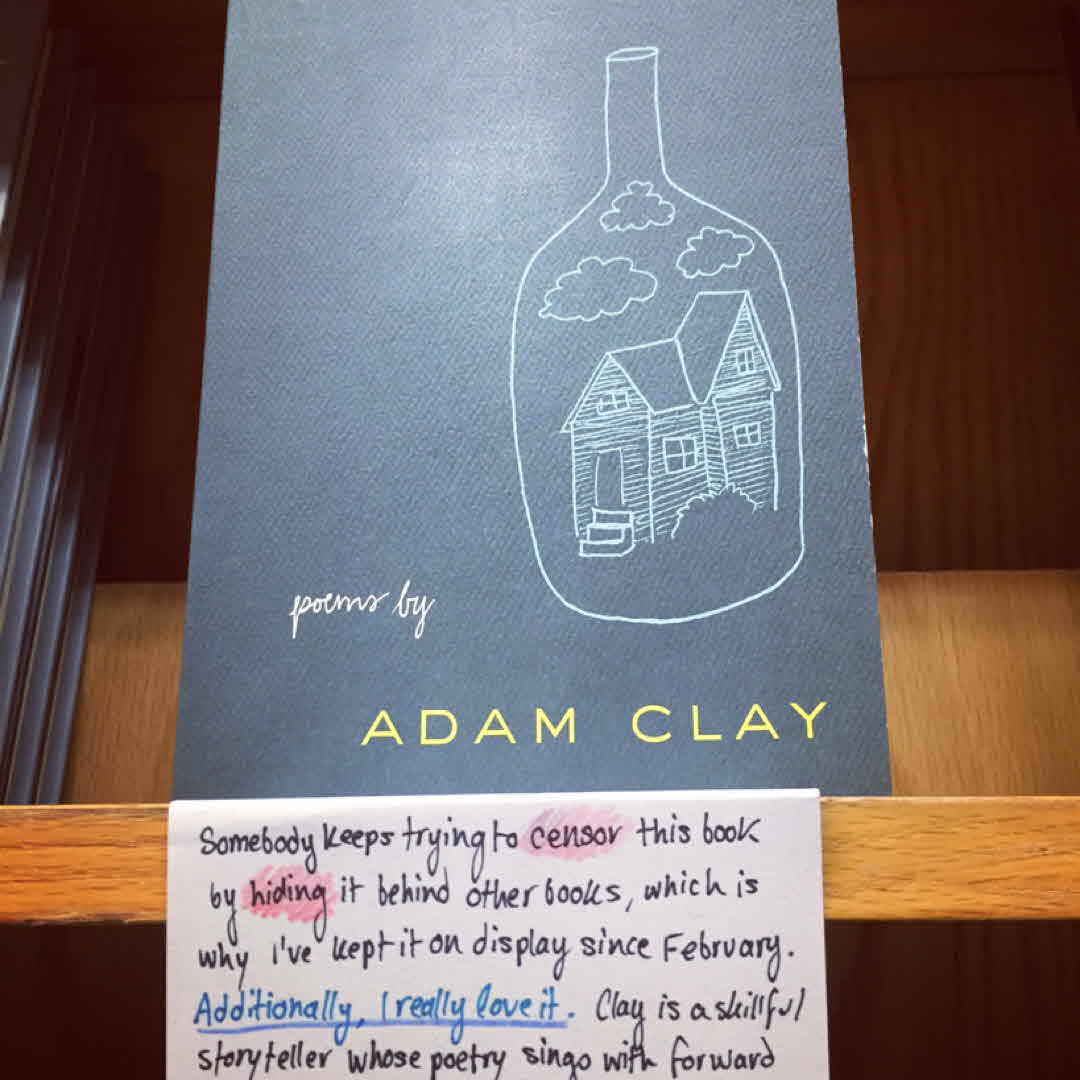 poems by
ADAM CLAY
Somebody keeps trying to censor this book
by hiding it behind other books, which is
why i've kept it on display since February.
Additionally, I really love it. Clay is a skillful
storyteller whose poetry sings with forward